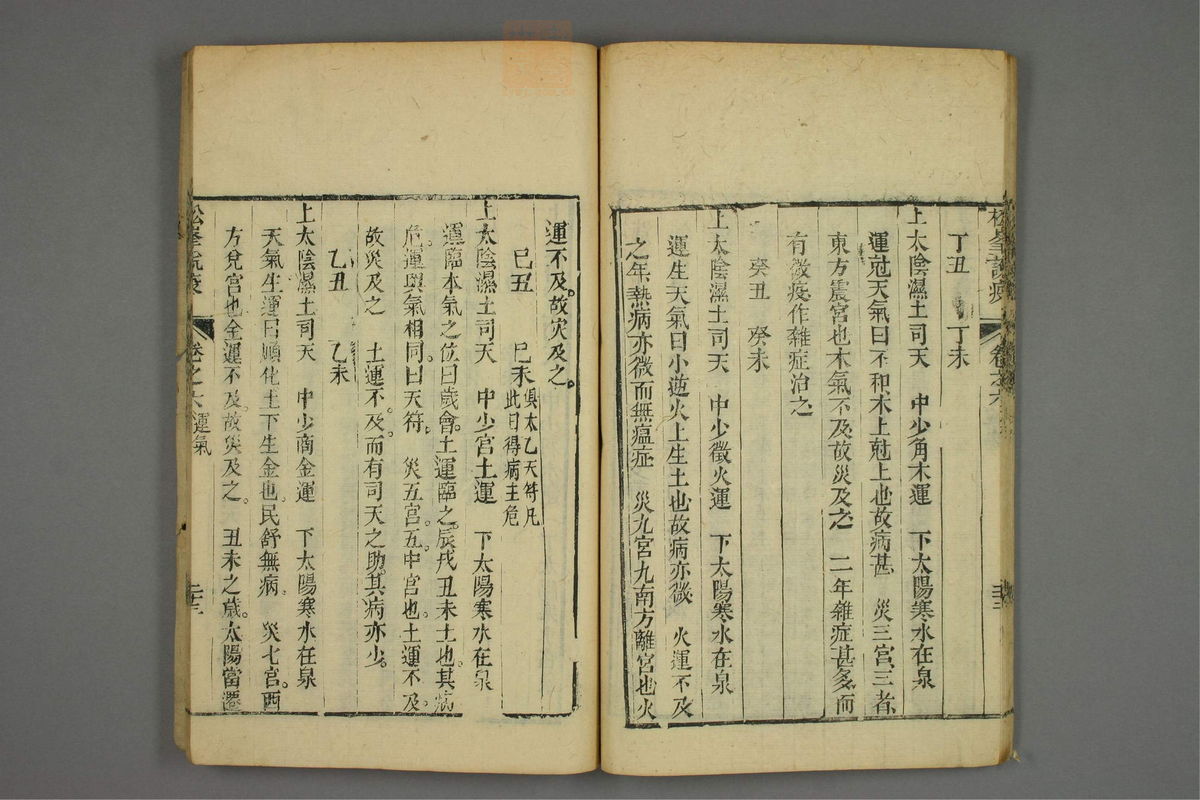 丁丑 丁未
上太陰濕土司天 中少角木運 下太陽寒水在泉
運尅天氣曰不和木上尅上也故病甚 災三宮三者
東方震宮也木氣不及故災及之 二年雜症甚多而
有微疫作雜症治之
癸丑 癸未
上太陰濕土司天 中少徵火運 下太陽寒水在泉
運生天氣曰小逆火上生土也故病亦微 火運不及
之年熱病亦微而無瘟症 災九宮九南方離宮也火
運不及故灾及之
己丑 己未 俱太乙天符凡
此日得病主危
上太陰濕土司天 中少宮土運 下太陽寒水在泉
運臨本氣之位曰歲會土運臨之辰戌丑未土也其病
危運與氣相同曰天符 災五宮五中宮也土運不及
故災及之 土運不及而有司天之助其病亦少
乙丑 乙未
上太陰濕土司天 中少商金運 下太陽寒水在泉
天氣生運曰順化土下生金也民舒無病 災七宮西
方兌宮也金運不及故災及之 丑未之歲太陽當遷
松峯說疫 卷之六 運氣 二十三